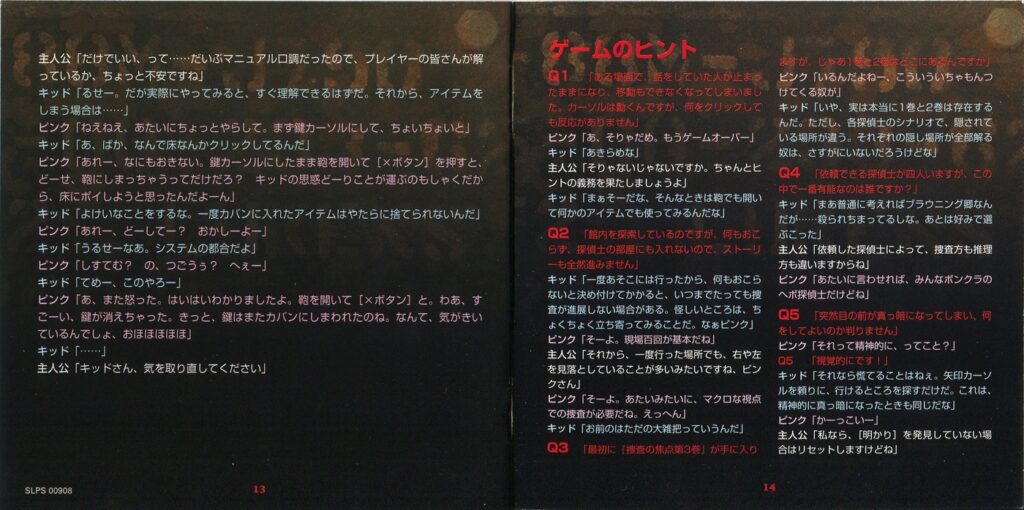 主人公「だけでいい、って……だいぶマニュアル口調だったので、プレイヤーの皆さんが解
っているか、ちょっと不安ですね」
キッド「るせー。だが実際にやってみると、すぐ理解できるはずだ。それから、アイテムを
しまう場合は……」
ピンク「ねえねえ、あたいにちょっとやらして。まず鍵カーソルにして、ちょいちょいと」
キッド「あ、ばか、なんで床なんかクリックしてるんだ」
ピンク「あれー、なにもおきない。鍵カーソルにしたまま鞄を開いて［×ボタン］を押すと、
どーせ、鞄にしまっちゃうってだけだろ？　キッドの思惑どーりことが運ぶのもしゃくだか
ら、床にポイしようと思ったんだよーん」
キッド「よけいなことをするな。一度カバンに入れたアイテムはやたらに捨てられないんだ」
ピンク「あれー、どーしてー？　おかしーよー」
キッド「うるせーなあ。システムの都合だよ」
ピンク「しすてむ？　の、つごうぅ？　へぇー」
キッド「てめー、このやろー」
ピンク「あ、また怒った。はいはいわかりましたよ。鞄を開いて［×ボタン］と。わあ、す
ごーい、鍵が消えちゃった。きっと、鍵はまたカバンにしまわれたのね。なんて、気がきい
ているんでしょ、おほほほほほ」
キッド「……」
主人公「キッドさん、気を取り直してください」
SLPS 00908
13
ゲームのヒント
Q1　「ある場面で、話をしていた人が止まっ
たままになり、移動もできなくなってしまいまし
した。カーソルは動くんですが、何をクリックして
も反応がありません」
ピンク「あ、そりゃだめ。もうゲームオーバー」
キッド「あきらめな」
主人公「そりゃないじゃないですか。ちゃんとヒ
ントの義務を果たしましょうよ」
キッド「まぁそーだな、そんなときは鞄でも開
いて何かのアイテムでも使ってみるんだな」
Q2　「館内を探索しているのですが、何もおこ
らず、探偵士の部屋にも入れないので、ストーリ
ーも全然進みません」
キッド「一度あそこには行ったから、何もおこらな
いと決め付けてかかると、いつまでたっても捜査
が進展しない場合がある。怪しいところは、ち
ょくちょく立ち寄ってみることだ。なぁピンク」
ピンク「そーよ。現場百回が基本だね」
主人公「それから、一度行った場所でも、右や左
を見落としていることが多いみたいですね、ピン
クさん」
ピンク「そーよ。あたいみたいに、マクロな視点
での捜査が必要だね。えっへん」
キッド「お前のはただの大雑把っていうんだ」
Q3　「最初に［捜査の焦点第3巻］が手に入り
ますが、じゃあ1巻と2巻はどこにあるんですか」
ピンク「いるんだよねー、こういういちゃもんつ
けてくる奴が」
キッド「いや、実は本当に1巻と2巻は存在する
んだ。ただし、各探偵士のシナリオで、隠されて
いる場所が違う。それぞれの隠し場所が全部解る
奴は、さすがにいないだろうけどな」
Q4　「依頼できる探偵士が四人いますが、この
中で一番有能なのは誰ですか？」
キッド「まあ普通に考えればブラウニング卿なん
だが……殺られちまってるしな。あとは好みで選
ぶこった」
主人公「依頼した探偵士によって、捜査方も推理
方も違いますからね」
ピンク「あたいに言わせれば、みんなボンクラの
ヘボ探偵士だけどね」
Q5　「突然目の前が真っ暗になってしまい、何
をしてよいのか判りません」
ピンク「それって精神的に、ってこと？」
Q5　「視覚的にです！」
キッド「それなら慌てることはねぇ。矢印カーソ
ルを頼りに、行けるところを探すだけだ。これは、
精神的に真っ暗になったときも同じだな」
ピンク「かーっこいー」
主人公「私なら、［明かり］を発見していない場
合はリセットしますけどね」
14